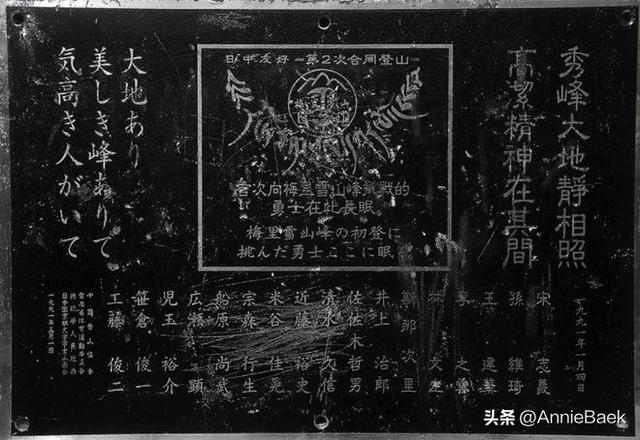 秀峰大地靜相照
高絜精神在其間
日中友好第2次合同登山
首次向梅里雪山峰挑戦的
勇士在此長眠
梅里雪山峰の初登に
挑んだ勇士ここに眠
大地あり
美しき峰ありて
気高き人がいて
一九九一年一月四日
宋 志義
孫 維琦
王 建華
李 之雲
林 文生
斯那次里
井上 治郎
佐佐木 哲男
清水 久信
近藤 裕史
米谷 佳晃
宗森 行生
船原 尚武
広瀬 顕
児玉 裕介
笹倉 俊一
工藤 俊二
中国登山協会
日本国京都大学学士山岳会
头条 @AnnieBaek